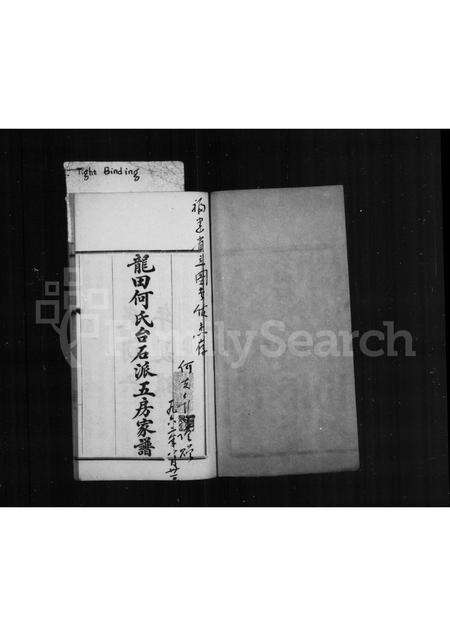 Tight Binding
福建省立圖書館惠存
龍田何氏台石派五房家譜
FamilySearch